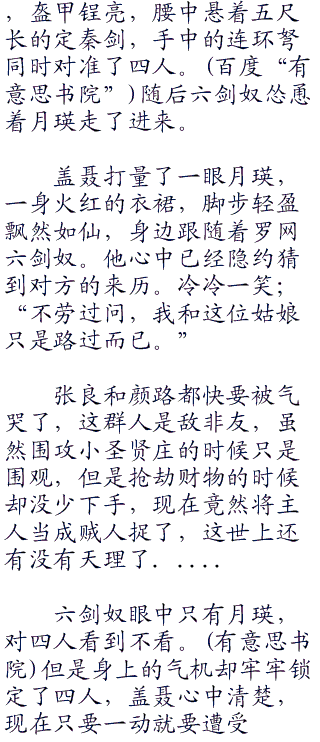 ，盔甲锃亮，腰中悬着五尺
长的定秦剑，手中的连环弩
同时对准了四人。(百度“有
意思书院”)随后六剑奴怂恿
着月瑛走了进来。
盖聂打量了一眼月瑛，
一身火红的衣裙，脚步轻盈
飘然如仙，身边跟随着罗网
六剑奴。他心中已经隐约猜
到对方的来历。冷冷一笑；
“不劳过问，我和这位姑娘
只是路过而已。”
张良和颜路都快要被气
哭了，这群人是敌非友，虽
然围攻小圣贤庄的时候只是
围观，但是抢劫财物的时候
却没少下手，现在竟然将主
人当成贼人捉了，这世上还
有没有天理了．．．．．
六剑奴眼中只有月瑛，
对四人看到不看。(有意思书
院)但是身上的气机却牢牢锁
定了四人，盖聂心中清楚，
现在只要一动就要遭受